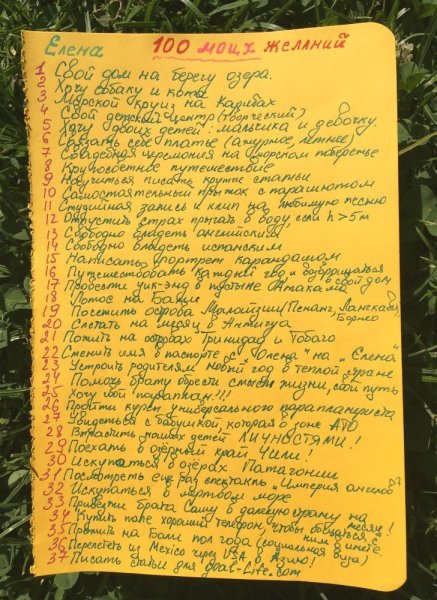 Елена 100 моих желаний
1 Свой дом на берегу озера.
2 Хочу собаку и кота
3 Морской круиз на Карибах
4 Свой детский центр (творческий)
5 Хочу двоих детей: мальчика и девочку.
6 Связать себе платье (ажурное, летнее)
7 Свадебная церемония на морском побережье
8 Кругосветное путешествие
9 Научиться писать крутые статьи
10 Самостоятельный прыжок с парашютом
11 Студийная запись и клип на любимую песню
12 Отпустить страх прыгать в воду, если h > 5м
13 Свободно владеть английским
14 Свободно владеть испанским
15 Написать портрет карандашом
16 Путешествовать каждый год и возвращаться
в свой дом
17 Провести уик-энд в пустыне Атакама
18 Лотос на Бали
19 Посетить острова Малайзии (Пенанг, Лангкави,
Борнео
20 Слетать на месяц в Антигуа
21 Пожить на островах Тринидад и Тобаго
22 Сменить имя в паспорте с "Олена" на "Елена"
23 Устроить родителям новый год в теплой стране
24 Помочь брату обрести смысл жизни, свой путь
25 Хочу свой параплан!!!
26 Пройти курсы универсального парапланериста
27 Увидеться с бабушкой, которая в зоне АТО
28 Вырастить наших детей ЛИЧНОСТЯМИ!
29 Поехать в озёрный край Чили!
30 Искупаться в озёрах Патагонии
31 Посмотреть ещё раз спектакль "Империя ангелов"
32 Искупаться в мёртвом море
33 Привезти брата Сашу в далёкую страну на
месяц!
34 Купить папе хороший телефон, чтобы общаться с
ним в инете
35 Прожить на Бали пол года (социальная виза)
36 Перелететь из Mexico через USA в Азию!
37 Писать статьи для goal-life.com